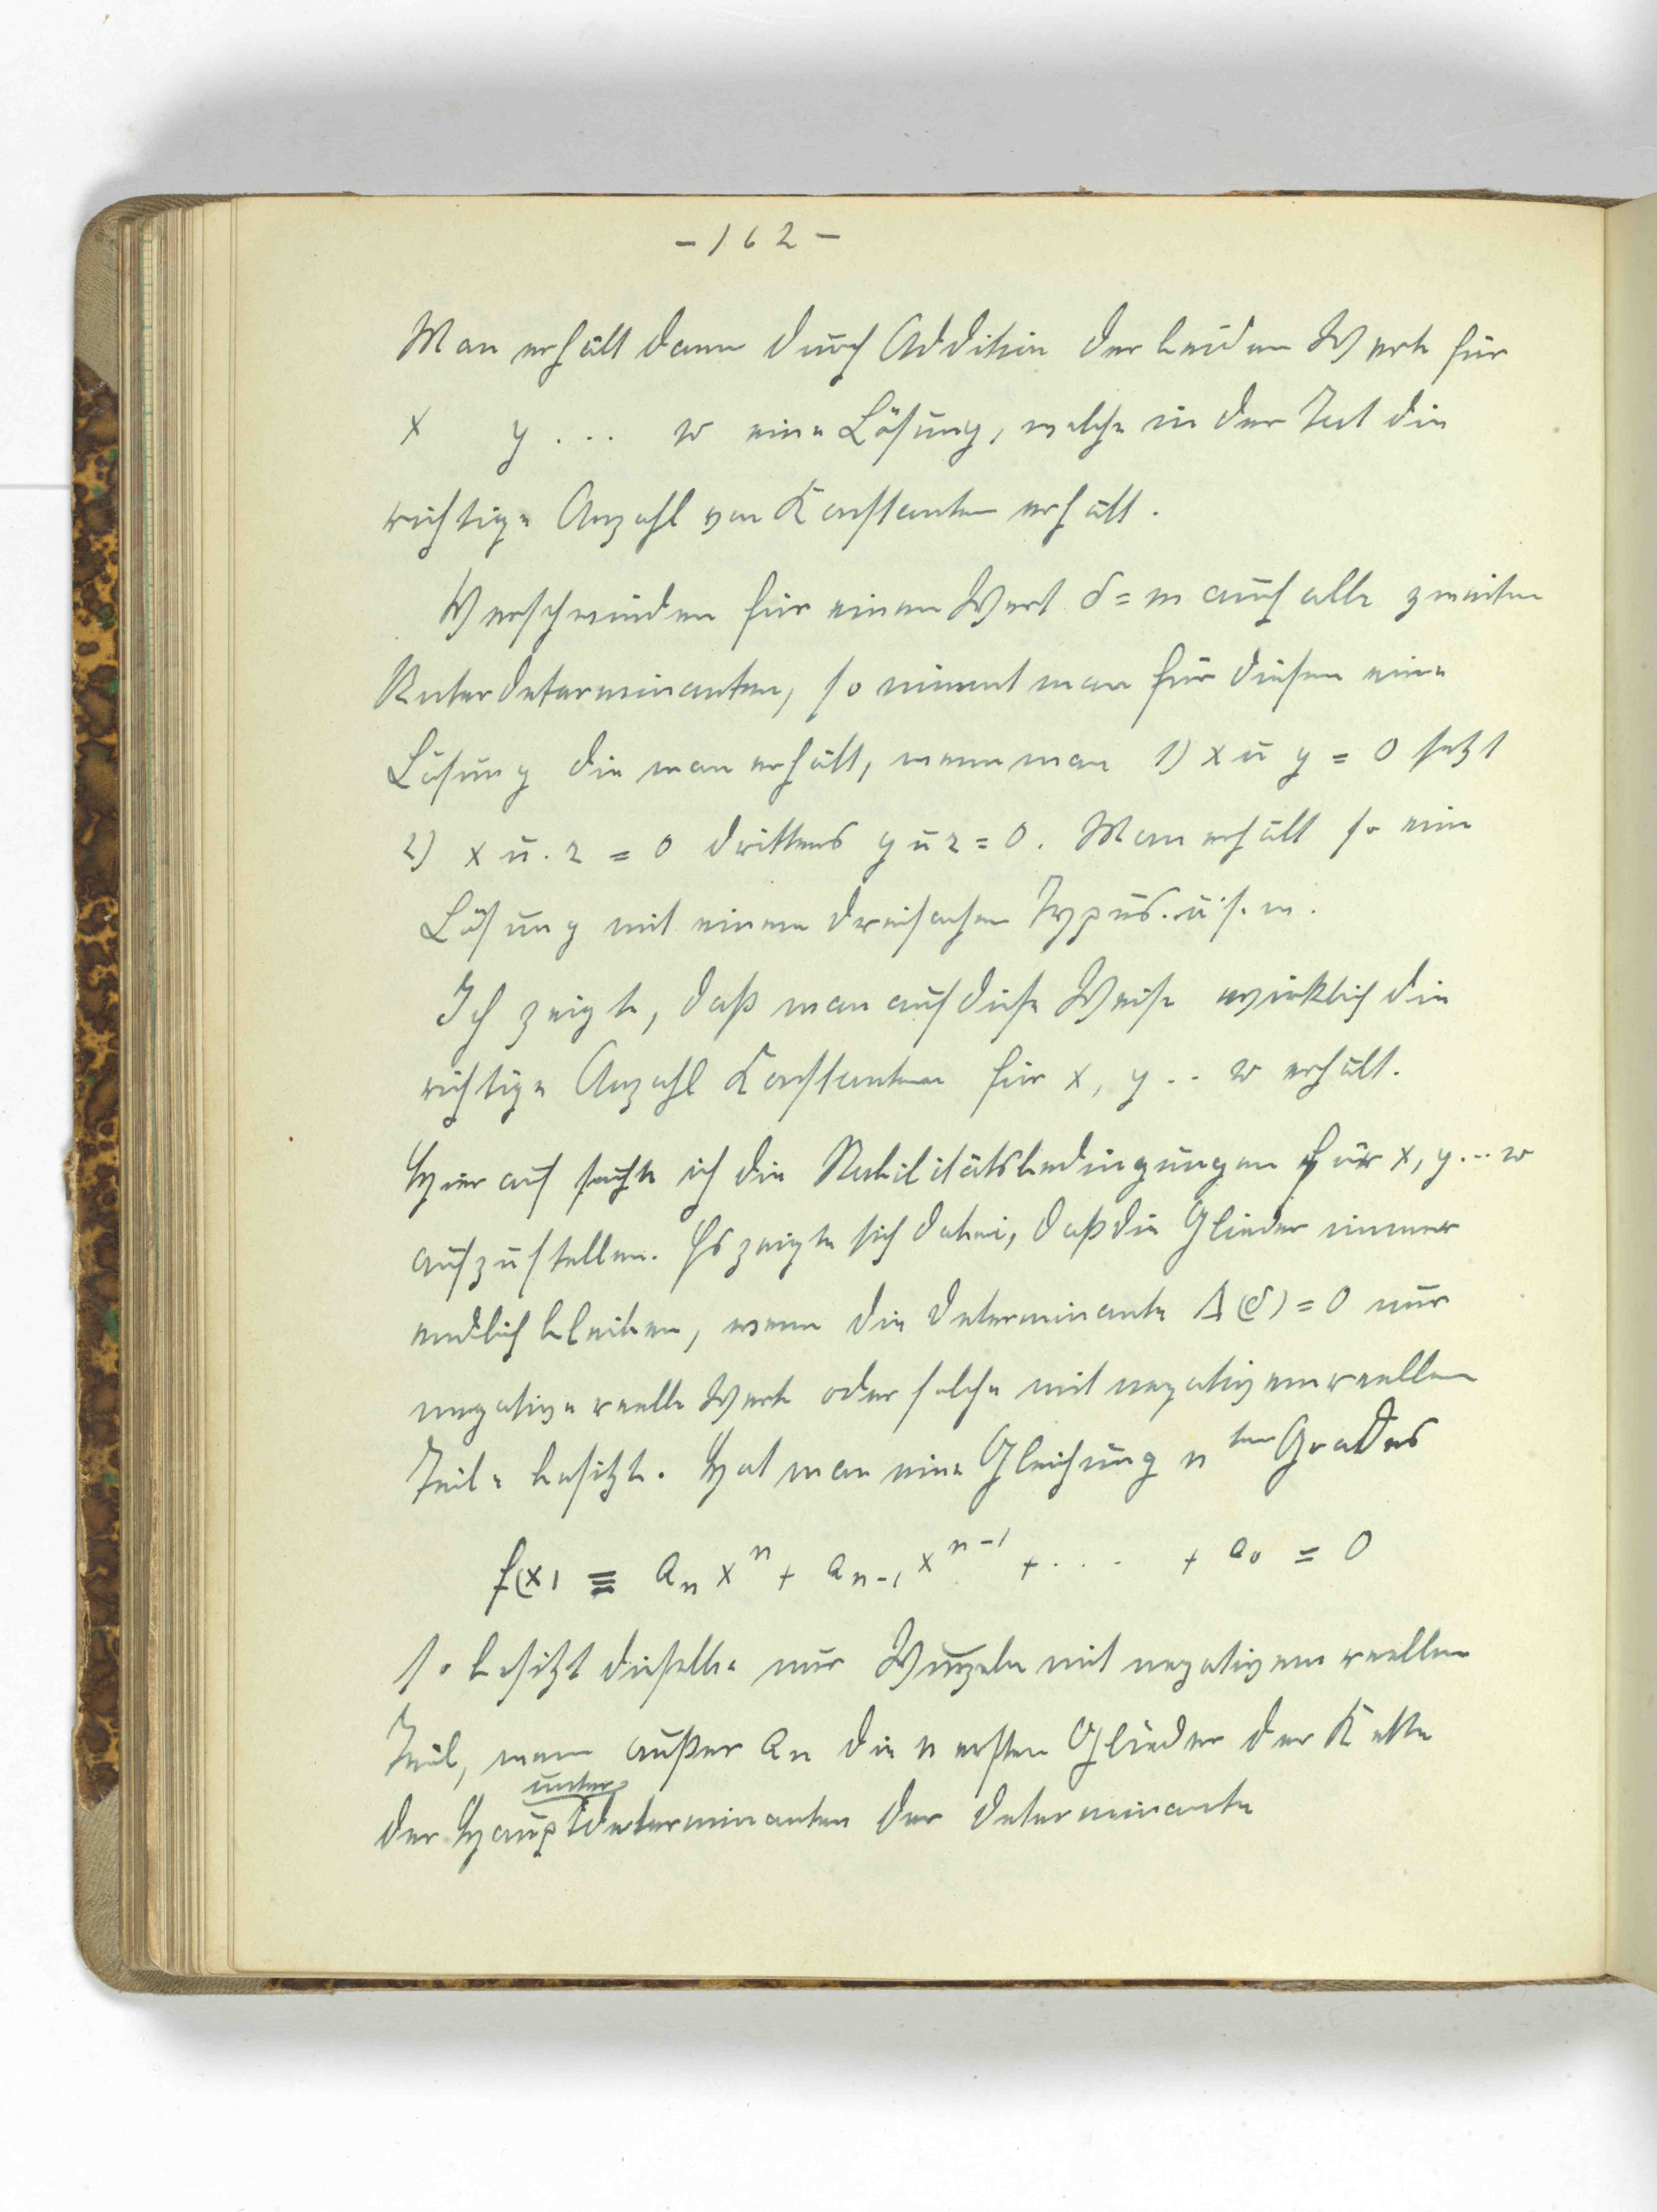 - 162 -
Man erhält dann durch Addition der beiden Werte für
x y ... w eine Lösung, welche in der Tat die
richtige Anzahl von Konstanten erhält.
Verschwinden für einen Wert δ = m auch alle zweiten
Unterdeterminanten, so nimmt man für diesen eine
Lösung die man erhält, wenn man 1) x u y = 0 setzt
2) x u. z = 0 drittens y u z = 0. Man erhält so eine
Lösung mit einem dreifachen Typus. u. s. w.
Ich zeigte, daß man auf diese Weise wirklich die
richtige Anzahl Konstanten für x, y .. w erhält.
Hierauf suchte ich die Stabilitätsbedingungen für x, y ... w
aufzustellen. Es zeigte sich dabei, daß die Glieder immer
endlich bleiben, wenn die Determinante Δ(δ) = 0 nur
negative reelle Werte oder solche mit negativem reellen
Teile besitzt. Hat man eine Gleichung n ten Grades
f(x) ≡ aₙ xⁿ + aₙ₋₁ xⁿ⁻¹ + ... + a₀ = 0
so besitzt dieselbe nur Wurzeln mit negativem reellen
Teil, wenn außer aₙ die n ersten Glieder der Kette
unter
der Hauptdeterminanten der Determinante